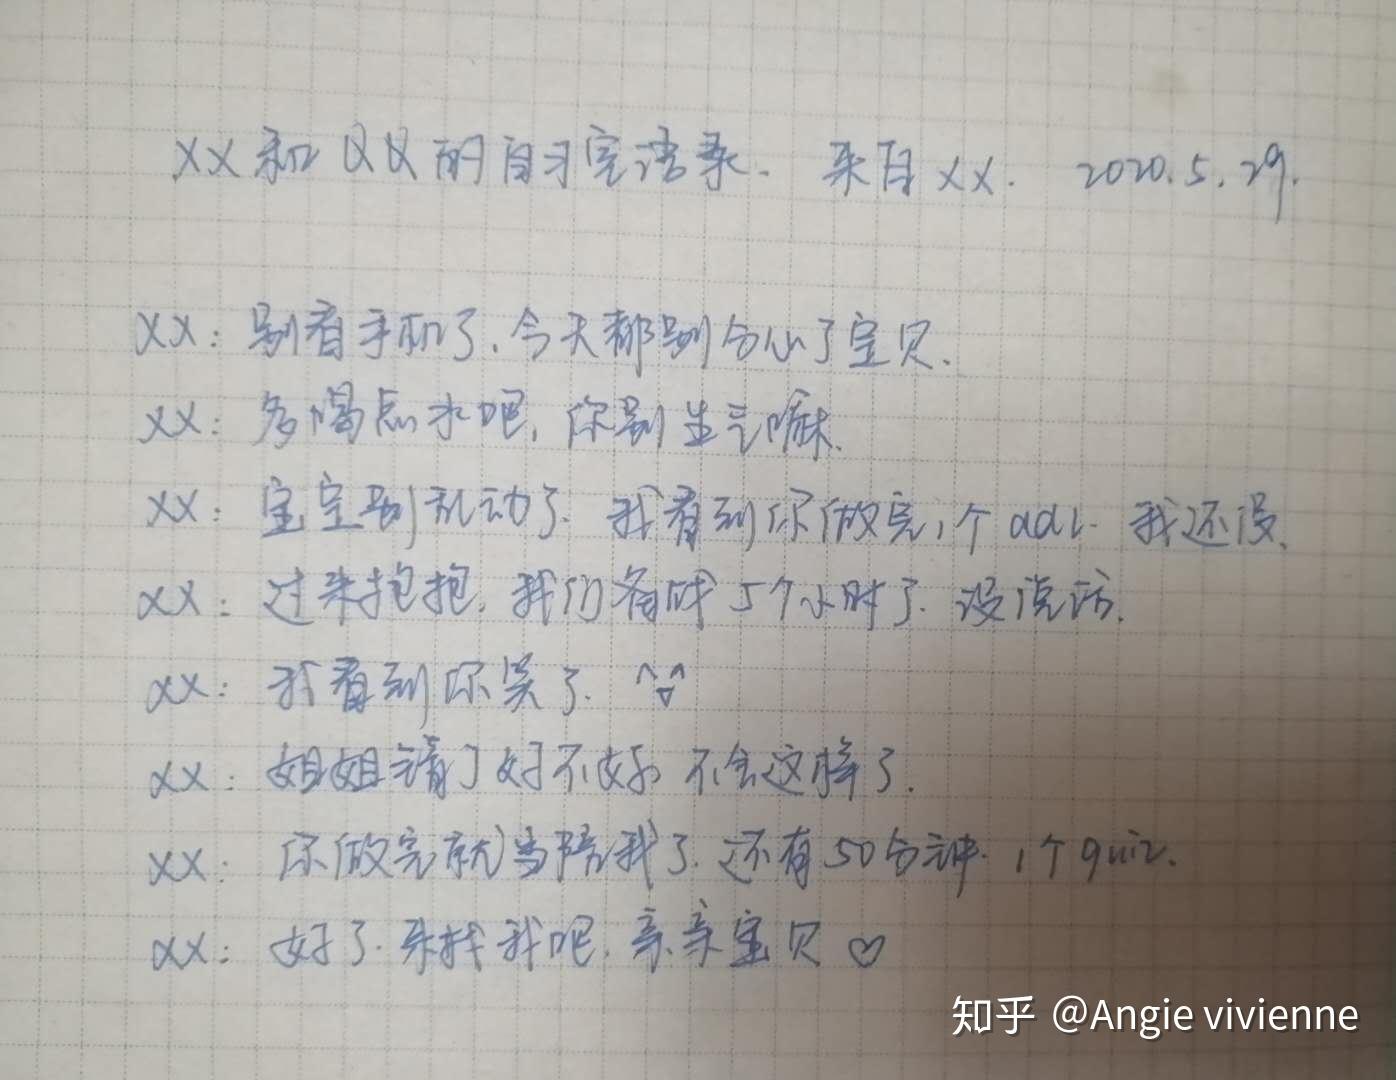 XX和QQ的自习室语录. 来自XX. 2020.5.29.
XX: 别看手机了.今天都别分心了宝贝.
XX: 多喝点水吧, 你别生气嘛.
XX: 宝宝别乱动了. 我看到你做完1个 我还没.
XX: 过来抱抱. 我们有5个小时了. 没说话.
XX: 我看到你笑了.
XX: 姐姐 了好不好 不会这样了.
XX: 你做完就当陪我了.还有50分钟. 1个quiz.
XX: 好了.来找我吧.亲亲宝贝♡
知乎 @Angie vivienne